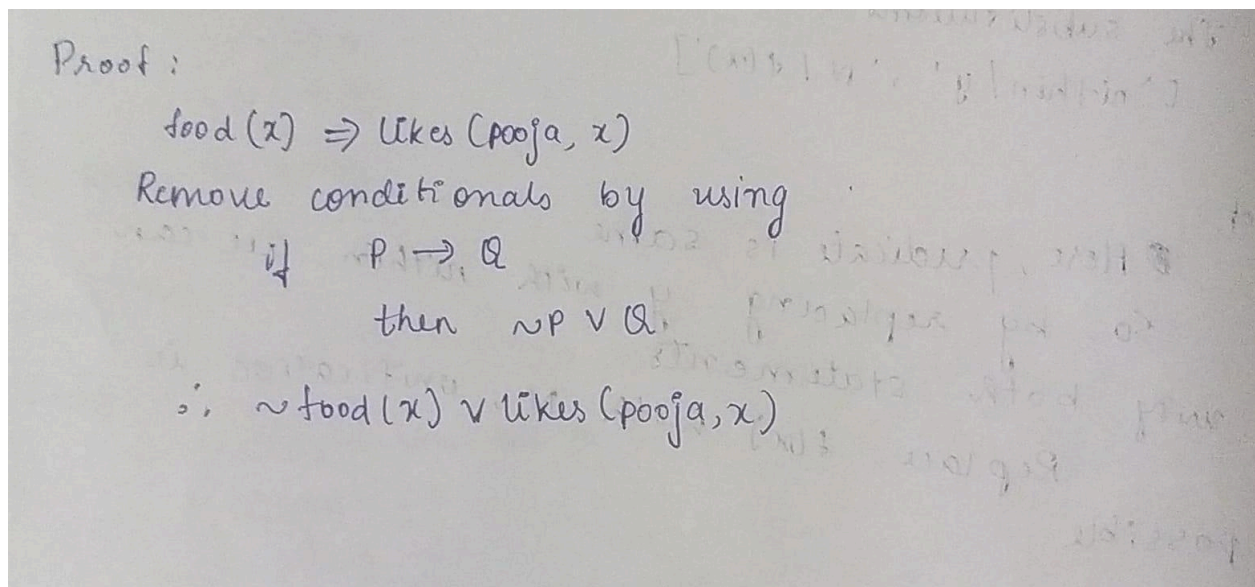 Proof :
food (x) ⇒ likes (pooja, x)
Remove conditionals by using
if P → Q
then ~P ∨ Q.
∴ ~food(x) ∨ likes (pooja, x)